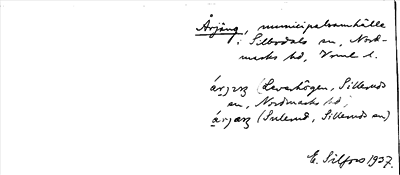 Årjäng, municipalsamhälle
i Silbodals sn, Nord-
marks hd, Vrml l.
(Leverhögen, Sillerud
sn, Nordmarks hd;
(Sulerud, Silleruds sn)
E. Silfors 1937.